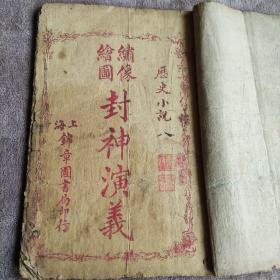 歷史小說 八
繡像
繪圖
封神演義
上海
錦章圖書局印行